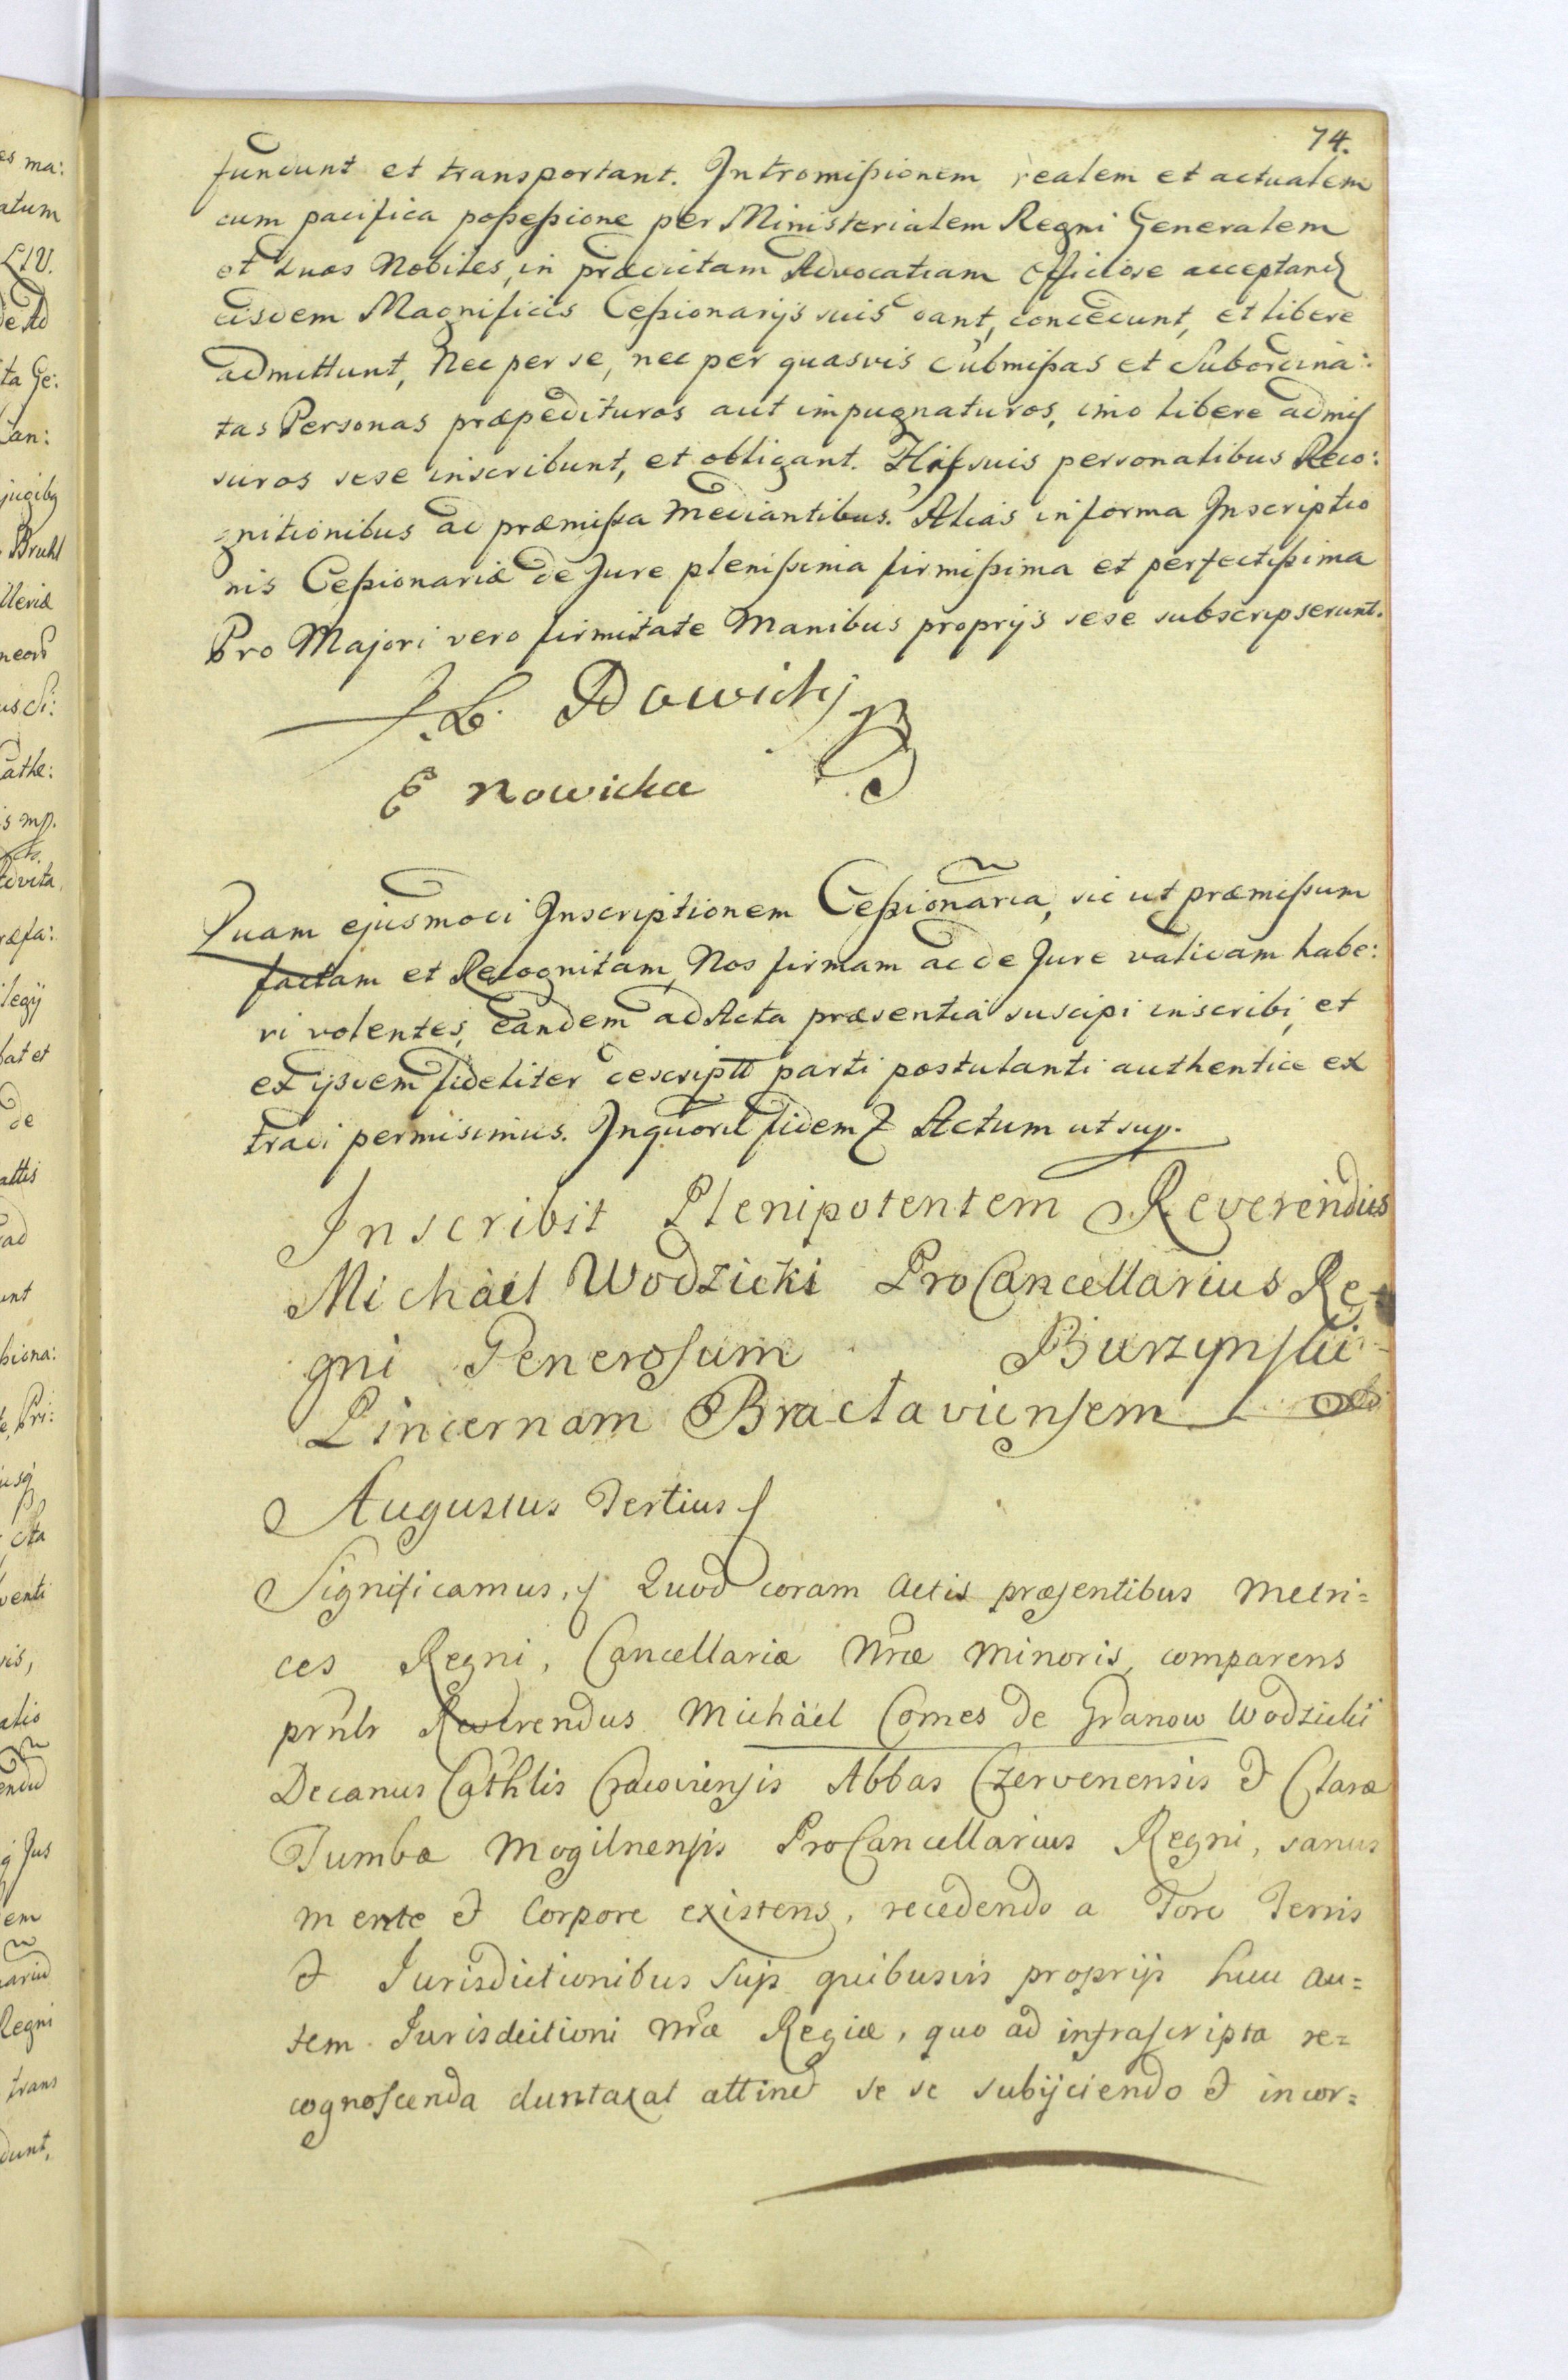 74.
fundunt et transportant. Intromißionem realem et actualem
cum pacifica poßeßione per Ministerialem Regni Generalem
et duos Nobiles, in prædictam Advocatiam officiose acceptand
eisdem Magnificis Ceßionarijs suis dant, concedunt, et libere
admittunt, Nec per se, nec per quasvis submißas et Subordina:
tas Personas præpedituros aut impugnaturos, imo libere admis
suros sese inscribunt, et obligant. His suis personalibus Reco:
gnitionibus ad præmißa mediantibus. Alias in forma Inscriptio
nis Ceßionariæ de Jure plenißima firmißima et perfectißima
Pro Majori vero firmitate Manibus proprijs sese subscripserunt.
J. L. Nowicky
E Nowicka
Quam ejusmodi Inscriptionem Ceßionaria, sic ut præmißum
factam et Recognitam, Nos firmam ac de Jure validam habe:
ri volentes, eandem ad Acta præsentia suscipi inscribi, et
ex ijsdem fideliter descriptt parti postulanti authentice ex
tradi permisimus. In quorū fidem Actum ut sup.
Inscribit Plenipotentem Reverendus
Michäel Wodzicki ProCancellarius Re-
gni Generosum Burzynski
Pincernam Bractaviensem
Augustus Tertius
Significamus, Quod coram Actis præsentibus Metri=
ces Regni, Cancellariæ Nræ Minoris, comparens
prnlr Reverendus Michäel Comes de Granow Wodzicki
Decanus Cathlis Cracoviensis Abbas Czervenensis & Claræ
Tumbæ Mogilnensis ProCancellarius Regni, sanus
mente & Corpore existens, recedendo a Foro Terris
& Jurisdictionibus suis quibusvis proprijs huic au=
tem Jurisdictioni Nræ Regiæ, quo ad infrascripta re=
cognoscenda duntaxat attinet se se subijciendo & incor=